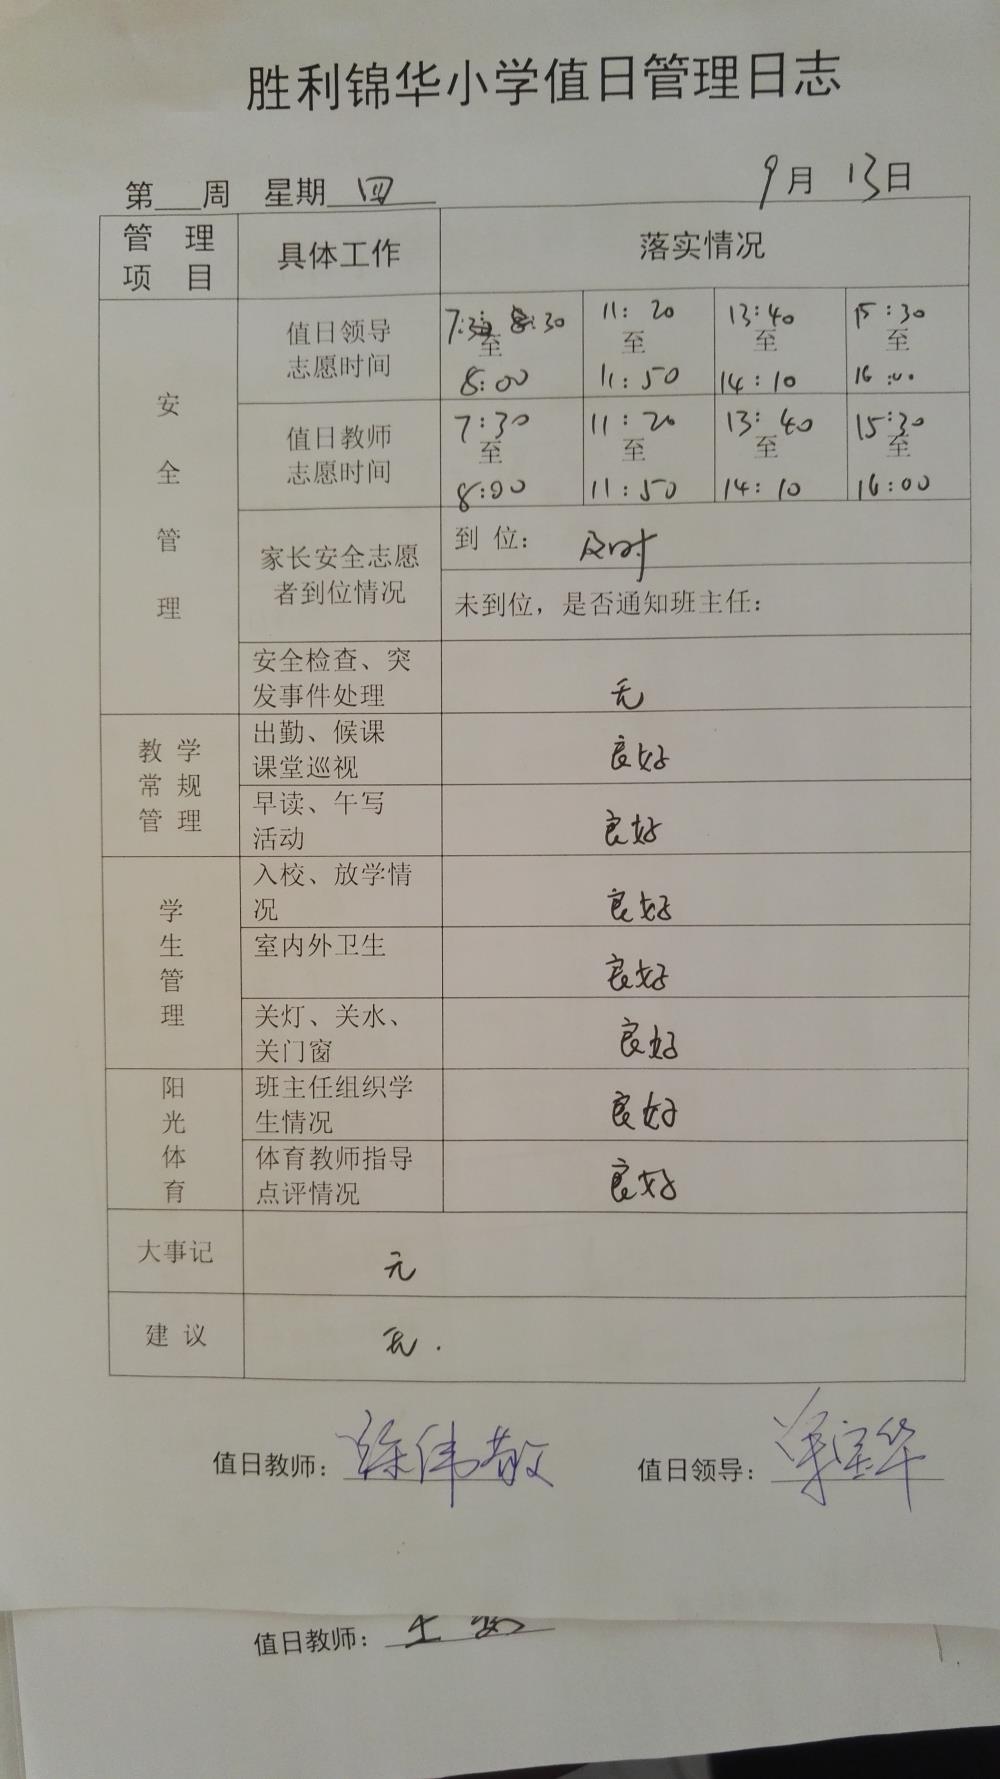 胜利锦华小学值日管理日志
第___周 星期 四 9月 13日
管 理
项 目
具体工作
落实情况
安
全
管
理
值日领导
志愿时间
8:30
至
8:00
11:20
至
11:50
13:40
至
14:10
15:30
至
16:00
值日教师
志愿时间
7:30
至
8:00
11:20
至
11:50
13:40
至
14:10
15:30
至
16:00
家长安全志愿
者到位情况
到 位: 及时
未到位，是否通知班主任：
安全检查、突
发事件处理
无
教 学
常 规
管 理
出勤、候课
课堂巡视
良好
早读、午写
活动
良好
学
生
管
理
入校、放学情
况
良好
室内外卫生
良好
关灯、关水、
关门窗
良好
阳
光
体
育
班主任组织学
生情况
良好
体育教师指导
点评情况
良好
大事记
无
建 议
无.
值日教师： 值日领导：
值日教师：